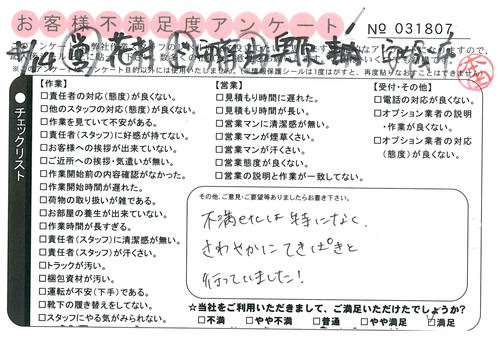 お客様不満足度アンケート
No 031807
チェックリスト
【作業】
□責任者の対応(態度)が良くない。
□他のスタッフの対応(態度)が良くない。
□作業を見ていて不安がある。
□責任者(スタッフ)に好感が持てない。
□お客様への挨拶が出来ていない。
□ご近所への挨拶・気遣いが無い。
□作業開始前の内容確認がなかった。
□作業開始時間が遅れた。
□荷物の取り扱いが雑である。
□お部屋の養生が出来ていない。
□作業時間が長すぎる。
□責任者(スタッフ)に清潔感が無い。
□責任者(スタッフ)が汗くさい。
□トラックが汚い。
□梱包資材が汚い。
□運転が不安(下手)である。
□靴下の履き替えをしてない。
□スタッフにやる気がみられない。
【営業】
□見積もり時間に遅れた。
□見積もり時間が長い。
□営業マンに清潔感が無い。
□営業マンが煙草くさい。
□営業マンが汗くさい。
□営業態度が良くない。
□営業の説明と作業が一致してない。
【受付・その他】
□電話の対応が良くない。
□オプション業者の説明
・作業が良くない。
□オプション業者の対応
(態度)が良くない。
その他、ご意見・ご要望等ありましたらお書き下さい。
不満etcは特になく、
さわやかにてきぱきと
行っていました!
☆当社をご利用いただきまして、ご満足いただけたでしょうか?
□不満 □やや不満 □普通 □やや満足 □満足